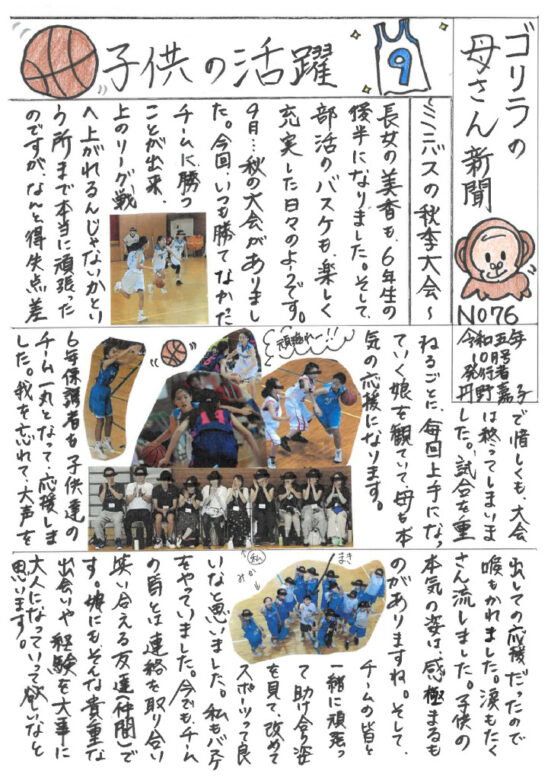 ゴリラの
母さん新聞
No76
令和五年
10月号
発行者
丹野嘉子
子供の活躍
9
〜ミニバスの秋季大会〜
長女の美香も、6年生の
後半になりました。そして、
部活のバスケも楽しく
充実した日々のようです。
9月…秋の大会がありまし
た。今回、いつも勝てなかった
チームに勝つ
ことが出来、
上のリーグ戦
へ上がれるんじゃないかとい
う所まで本当に頑張った
のですが、なんと得失点差
で惜しくも、大会
は終ってしまいま
した。試合を重
ねるごとに、毎回上手になっ
ていく娘を観ていて、母も本
気の応援になります。
頑張れー!!
6年保護者も子供達の
チーム一丸となって、応援しま
した。我を忘れて、大声を
出しての応援だったので
喉もかれました。涙もたく
さん流しました。子供の
本気の姿は感極まるも
のがありますね。そして、
チームの皆と
一緒に頑張っ
て助け合う姿
を見て、改めて
スポーツって良
いなと思いました。私もバスケ
をやっていました。今でもチーム
の皆とは連絡を取り合い
笑い合える友達・仲間で
す。娘にもそんな貴重な
出会いや経験を大事に
大人になっていって欲いなと
思います。
私
みか
まき